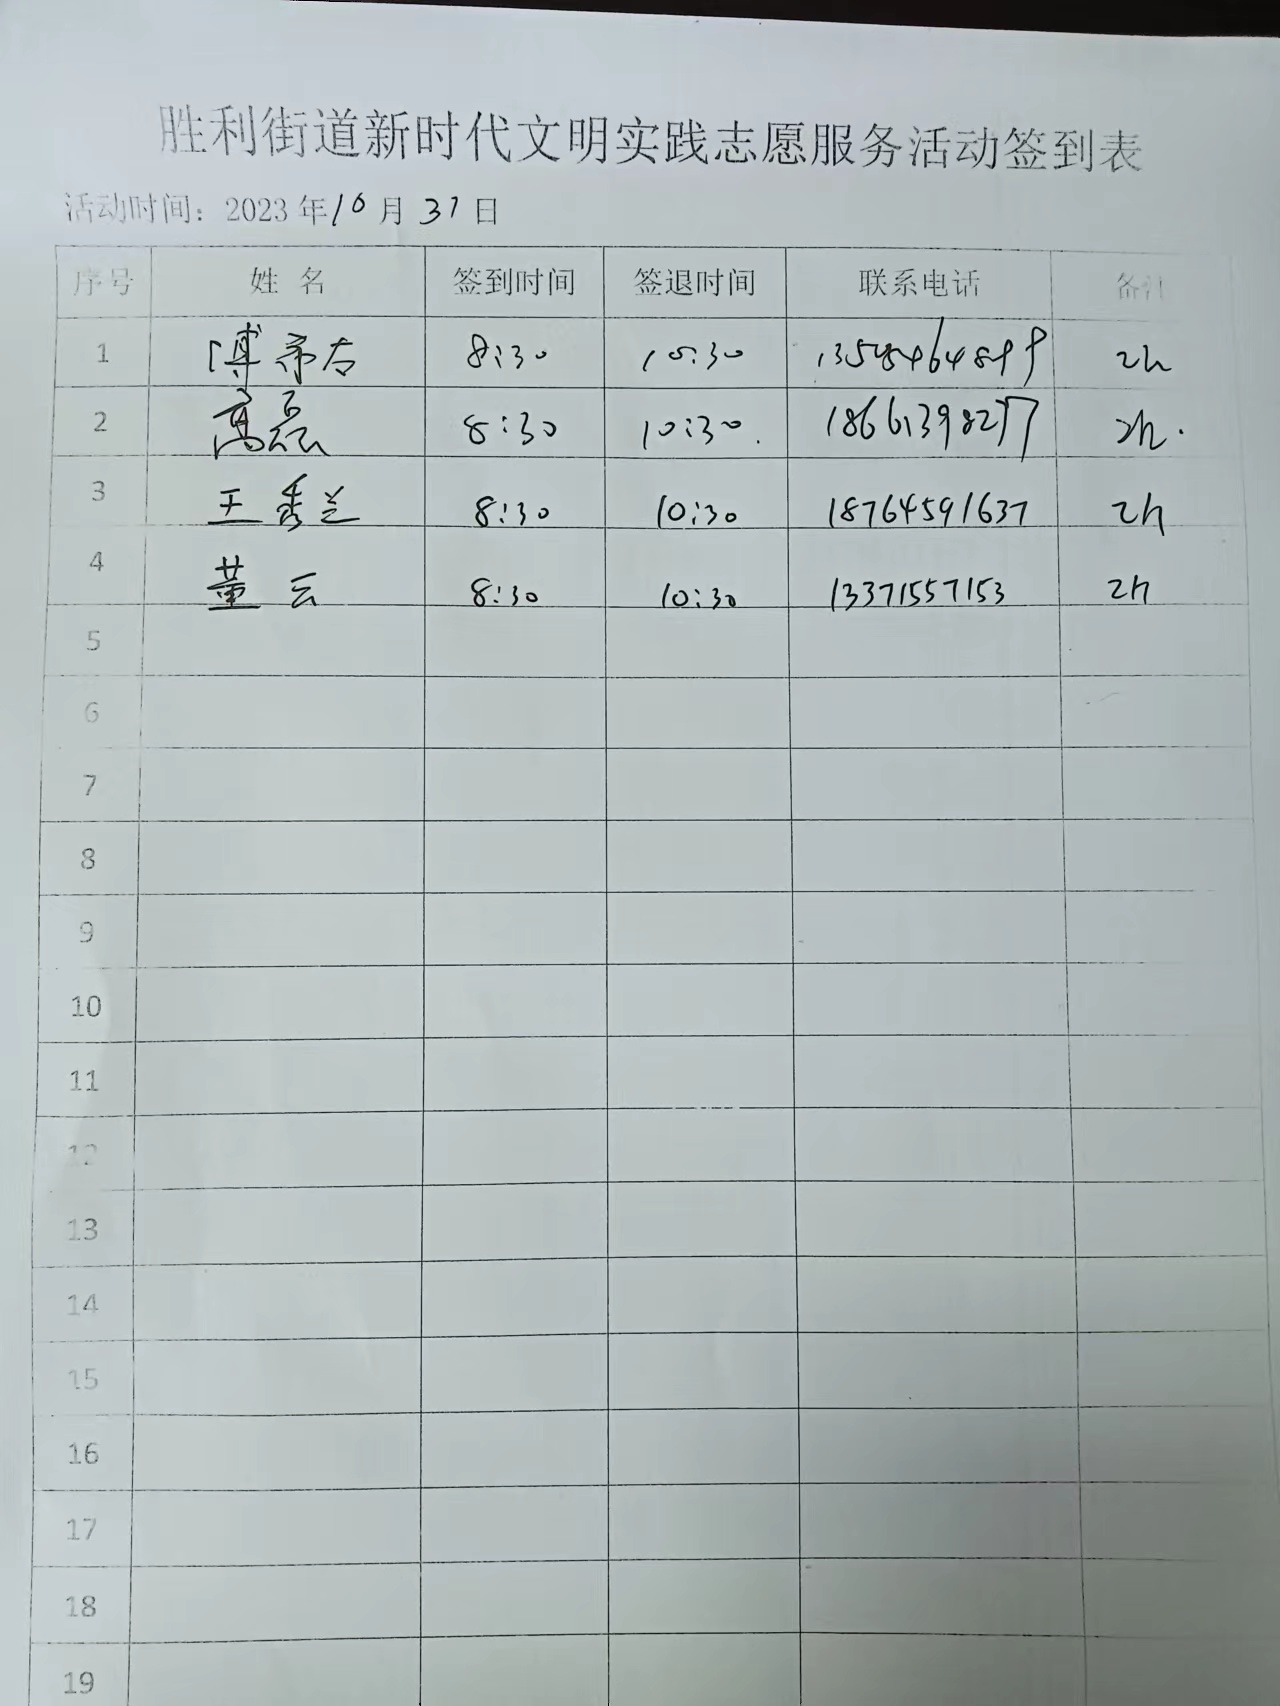 胜利街道新时代文明实践志愿服务活动签到表
活动时间：2023年10月31日
序号 姓名 签到时间 签退时间 联系电话 备注
1 8:30 10:30 2h
2 高磊 8:30 10:30. 18661398277 2h.
3 王秀兰 8:30 10:30 18764591637 2h
4 董云 8:30 10:30 13371557153 2h
5
6
7
8
9
10
11
12
13
14
15
16
17
18
19